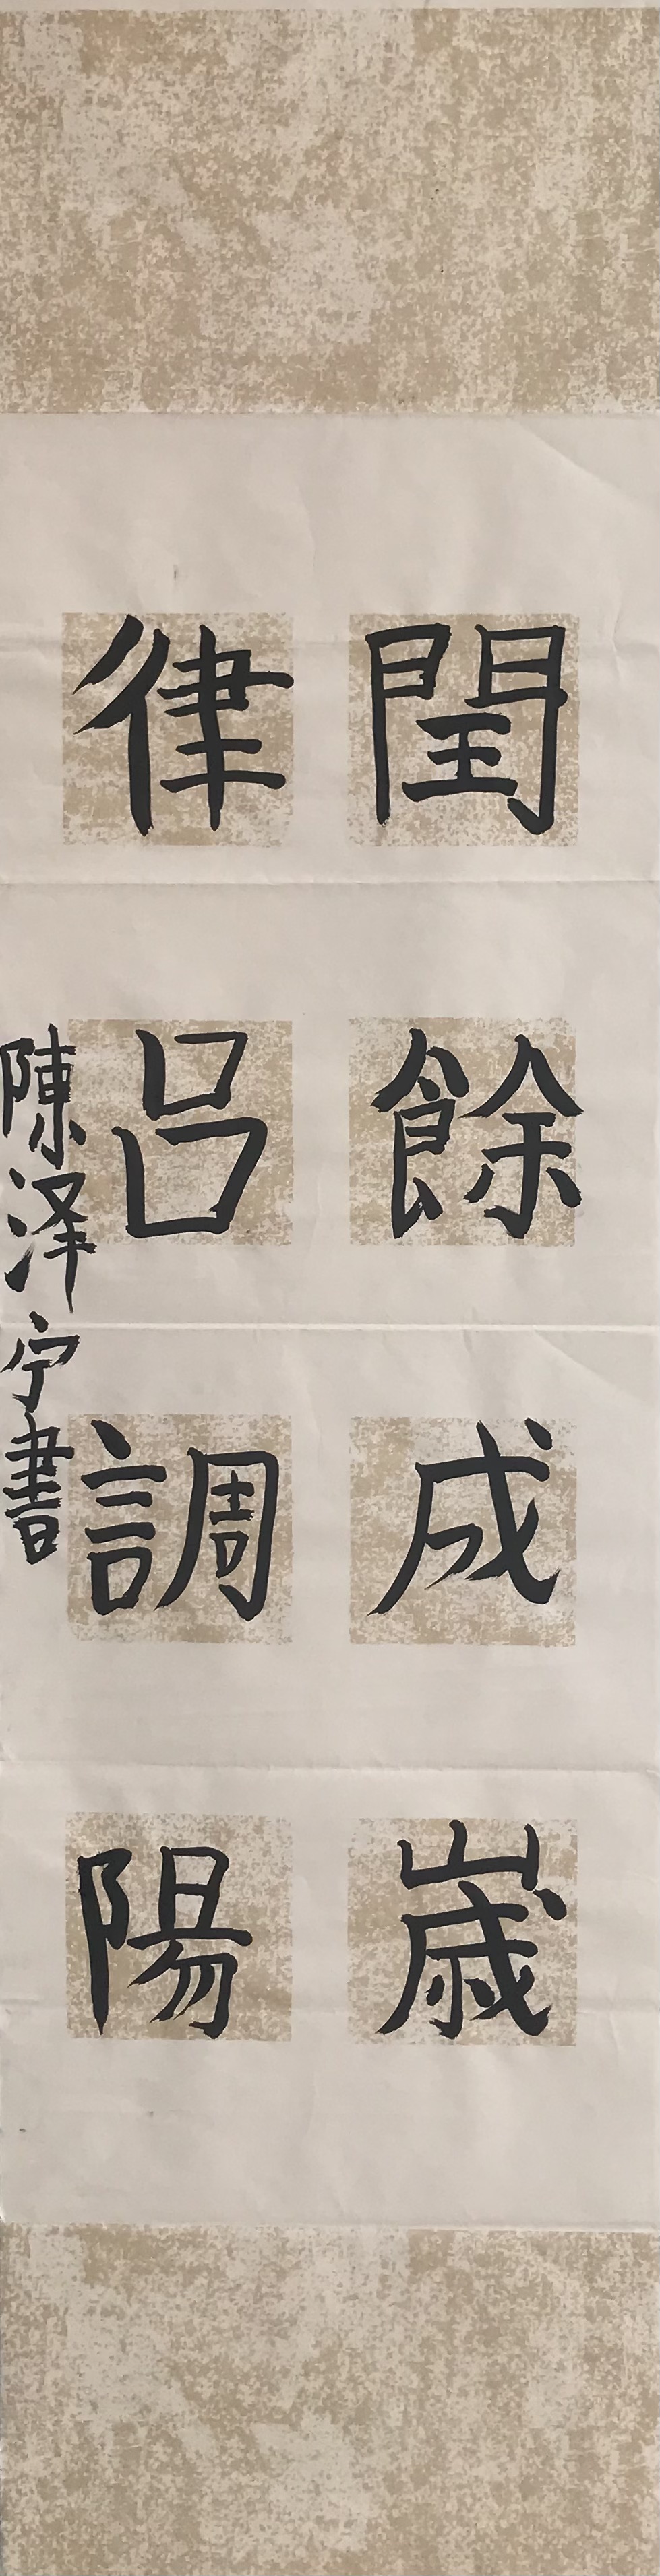 閏餘成歲
律呂調陽
陳泽宁書